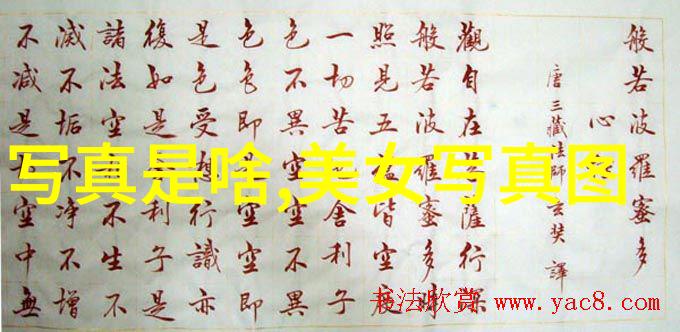 般若波羅蜜多
心
唐三藏法師玄奘 譯
觀自在薩行深
般若波羅蜜多時
照見五皆空度
一切苦舍利子
色不異空空不異
色色即是空空即
是色受想行識亦
復如是利子是
諸法空不生不
滅不垢不淨不增
不減是空中無
写真是啥,美女写真图
书法欣赏 www.yac8.com